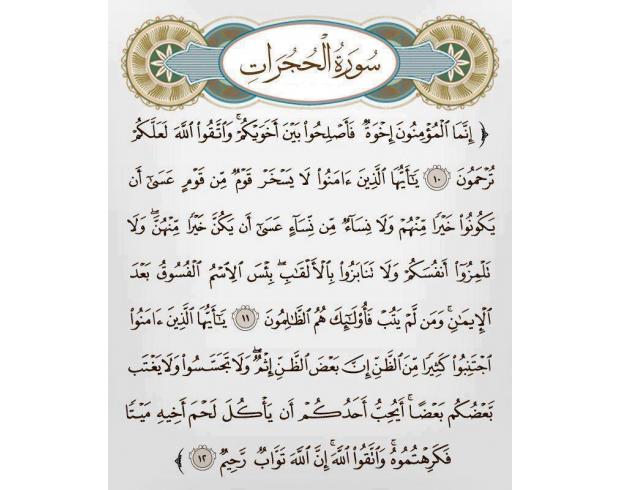 سُورَةُ الْحُجُرَاتِ
﴿ إِنَّمَا الْمُؤْمِنُونَ إِخْوَةٌ فَأَصْلِحُوا بَيْنَ أَخَوَيْكُمْ ۚ وَاتَّقُوا اللَّهَ لَعَلَّكُمْ
تُرْحَمُونَ ١٠ يَٰٓأَيُّهَا الَّذِينَ ءَامَنُوا لَا يَسْخَرْ قَوْمٌ مِّن قَوْمٍ عَسَىٰٓ أَن
يَكُونُوا خَيْرًا مِّنْهُمْ وَلَا نِسَآءٌ مِّن نِّسَآءٍ عَسَىٰٓ أَن يَكُنَّ خَيْرًا مِّنْهُنَّ ۖ وَلَا
تَلْمِزُوٓا أَنفُسَكُمْ وَلَا تَنَابَزُوا بِالْأَلْقَٰبِ ۖ بِئْسَ الِاسْمُ الْفُسُوقُ بَعْدَ
الْإِيمَٰنِ ۚ وَمَن لَّمْ يَتُبْ فَأُولَٰٓئِكَ هُمُ الظَّٰلِمُونَ ١١ يَٰٓأَيُّهَا الَّذِينَ ءَامَنُوا
اجْتَنِبُوا كَثِيرًا مِّنَ الظَّنِّ إِنَّ بَعْضَ الظَّنِّ إِثْمٌ ۖ وَلَا تَجَسَّسُوا وَلَا يَغْتَب
بَّعْضُكُم بَعْضًا ۚ أَيُحِبُّ أَحَدُكُمْ أَن يَأْكُلَ لَحْمَ أَخِيهِ مَيْتًا
فَكَرِهْتُمُوهُ ۚ وَاتَّقُوا اللَّهَ ۚ إِنَّ اللَّهَ تَوَّابٌ رَّحِيمٌ ١٢ ﴾